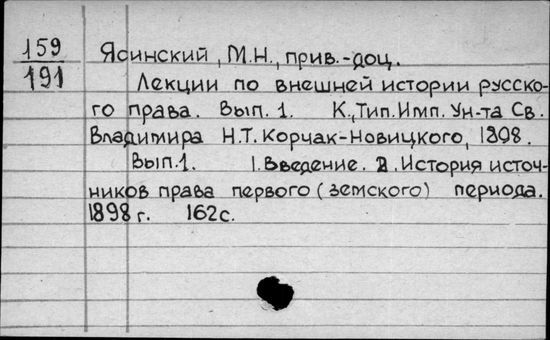 159
191
Ясинский, М.Н., прив.-доц.
Лекции по внешней истории русско-
го права. Вып. 1. К., Тип. Имп. Ун-та Св.
Владимира Н.Т. Корчак-Новицкого, 1898.
Вып.1. 1. Введение. 2. История источ-
ников права первого (земского) периода.
1898 г. 162 с.